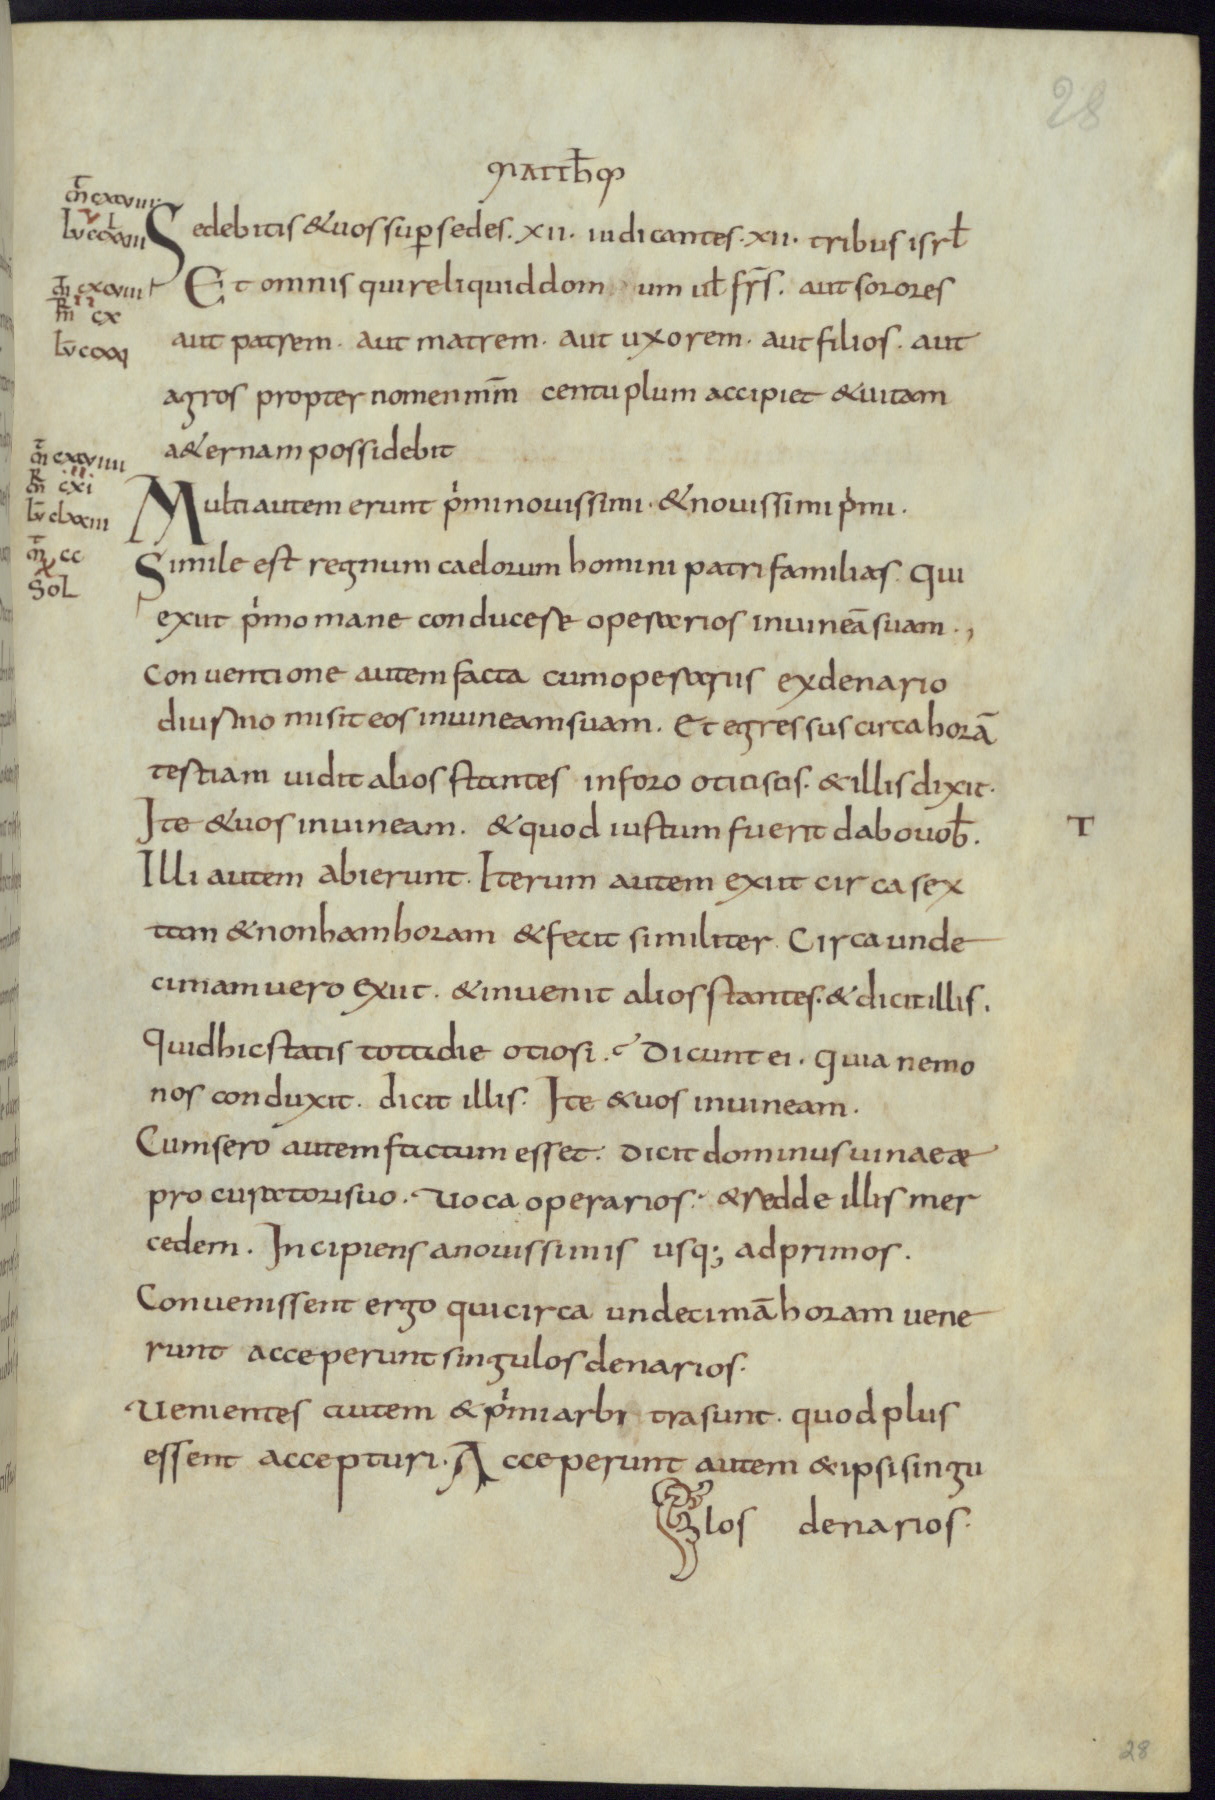 28
matth̄
Sedebitis & vos sup sedes. xii. iudicantes. xii. tribus isrł
Et omnis qui reliquid dom um uł frs̄. aut sorores
aut patrem. aut matrem. aut uxorem. aut filios. aut
agros propter nomen mm̄ centuplum accipiet & uitam
a&ernam possidebit
Multi autem erunt pͥmi nouissimi. & nouissimi pͥmi.
Simile est regnum caelorum homini patri familias. Qui
exiit pͥmo mane conducere operarios in uineā suam.,
Conuentione autem facta cum operariis ex denario
diurno misit eos in uineam suam. Et egressus circa horā
tertiam uidit alios stantes in foro . & illis dixit.
Ite & uos in uineam. & quod iustum fuerit dabo uob̄.
T
Illi autem abierunt. Iterum autem exiit circa sex
tam & nonham horam & fecit similiter. Circa unde
cimam uero exiit. & inuenit alios stantes. & dicit illis.
Quid hic statis tota die otiosi. Dicunt ei. Quia nemo
nos conduxit. dicit illis. Ite & uos in uineam.
Cum sero autem factum esset. Dicit dominus uinaeae
procuratori suo. Uoca operarios. & redde illis mer
cedem. Incipiens a nouissimis usq; ad primos.
Conuenissent ergo qui circa undecimā horam uene
runt acceperunt singulos denarios.
Uenientes autem & pͥmi arbi trasunt. quod plus
essent accepturi. Acceperunt autem & ipsi singu
los denarios.
m̄ cxcviii
m̄ cx
m̄ cxcviiii
m̄ cxi
lv̄ clxxiii
m̄ cc
x
Sol
28